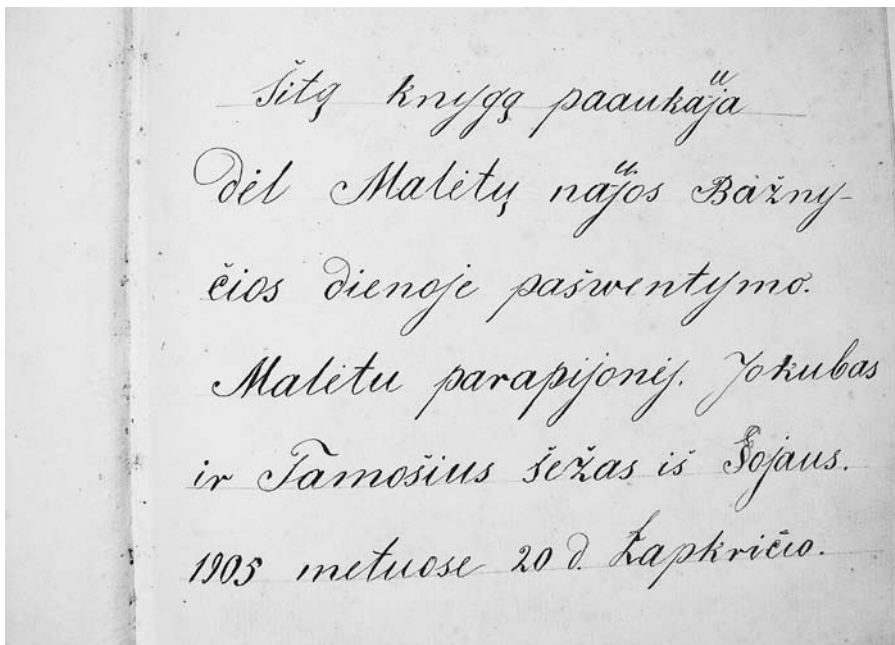 Šitą knygą paaukäuja
dėl Malėtų näujos Bažny-
čios dienoje pašwentymo.
Malėtu parapijonėj. Jokubas
ir Tamošius šežas iš Gojaus.
1905 metuose 20 d. Łapkričio.